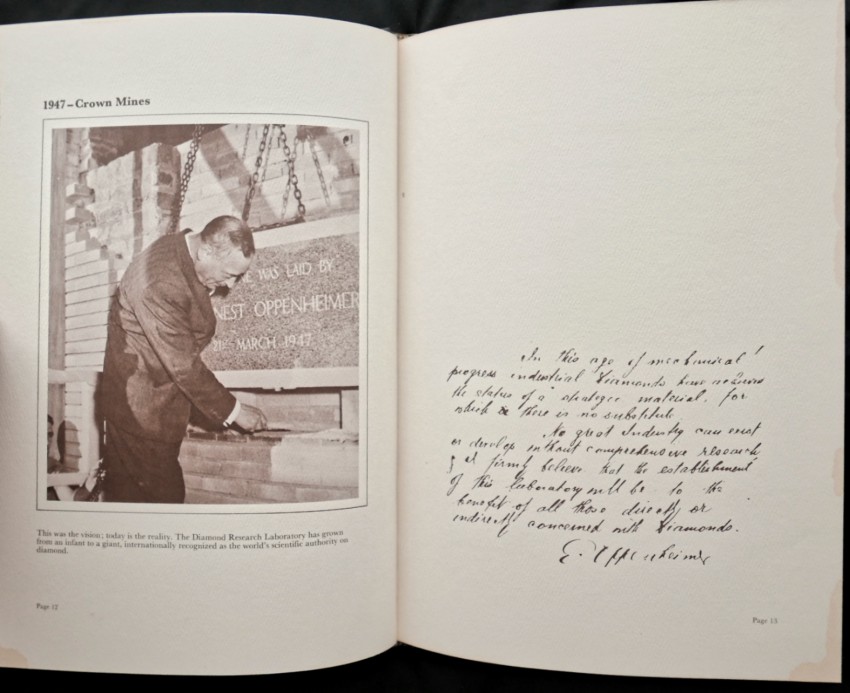 1947–Crown Mines
E WAS LAID BY
NEST OPPENHEIMER
21ST MARCH 1947
This was the vision; today is the reality. The Diamond Research Laboratory has grown
from an infant to a giant, internationally recognized as the world's scientific authority on
diamond.
Page 12
In this age of mechanical
progress industrial diamonds have
the status of a strategic material, for
which there is no substitute.
No great Industry can exist
or develop without comprehensive research
& I firmly believe that the establishment
of this laboratory will be to the
benefit of all those directly or
indirectly concerned with diamonds.
E. Oppenheimer
Page 13